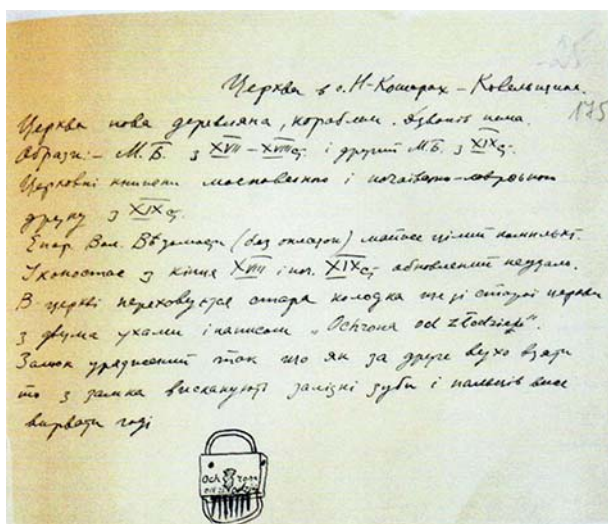 175
Церква в с. Н-Кошарах – Ковельщина.
Церква нова деревляна, кораблем. Дзвонів нема.
Образи: – М.Б. з XVII – XVIII ст. і другий М.Б. з XIX ст.
Церковні книжки московського і почаївсько-лаврського
друку з XIX ст.
Епар. Вол. Вѣдомости (без окладок) майже цілий комплєкт.
Іконостас з кінця XVIII і поч. XIX ст. обновлений невдало.
В церкві переховується стара колодка ще зі старої церкви
з двума ухами і написом „Ochrona od złodzieji".
Замок уряджений так що як за друге вухо взяти
то з замка вискакують залізні зуби і пальців вже
вирвати годі
Och ron
od złodzieji